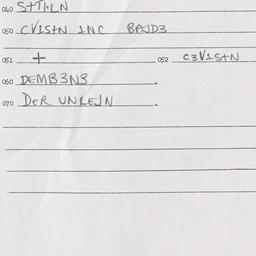 040 STTILN
050 CV1StN 1NC BAJD3
051 + 052 C3V1StN
060 DEMB3N3 .
070 DER UNLEJN .